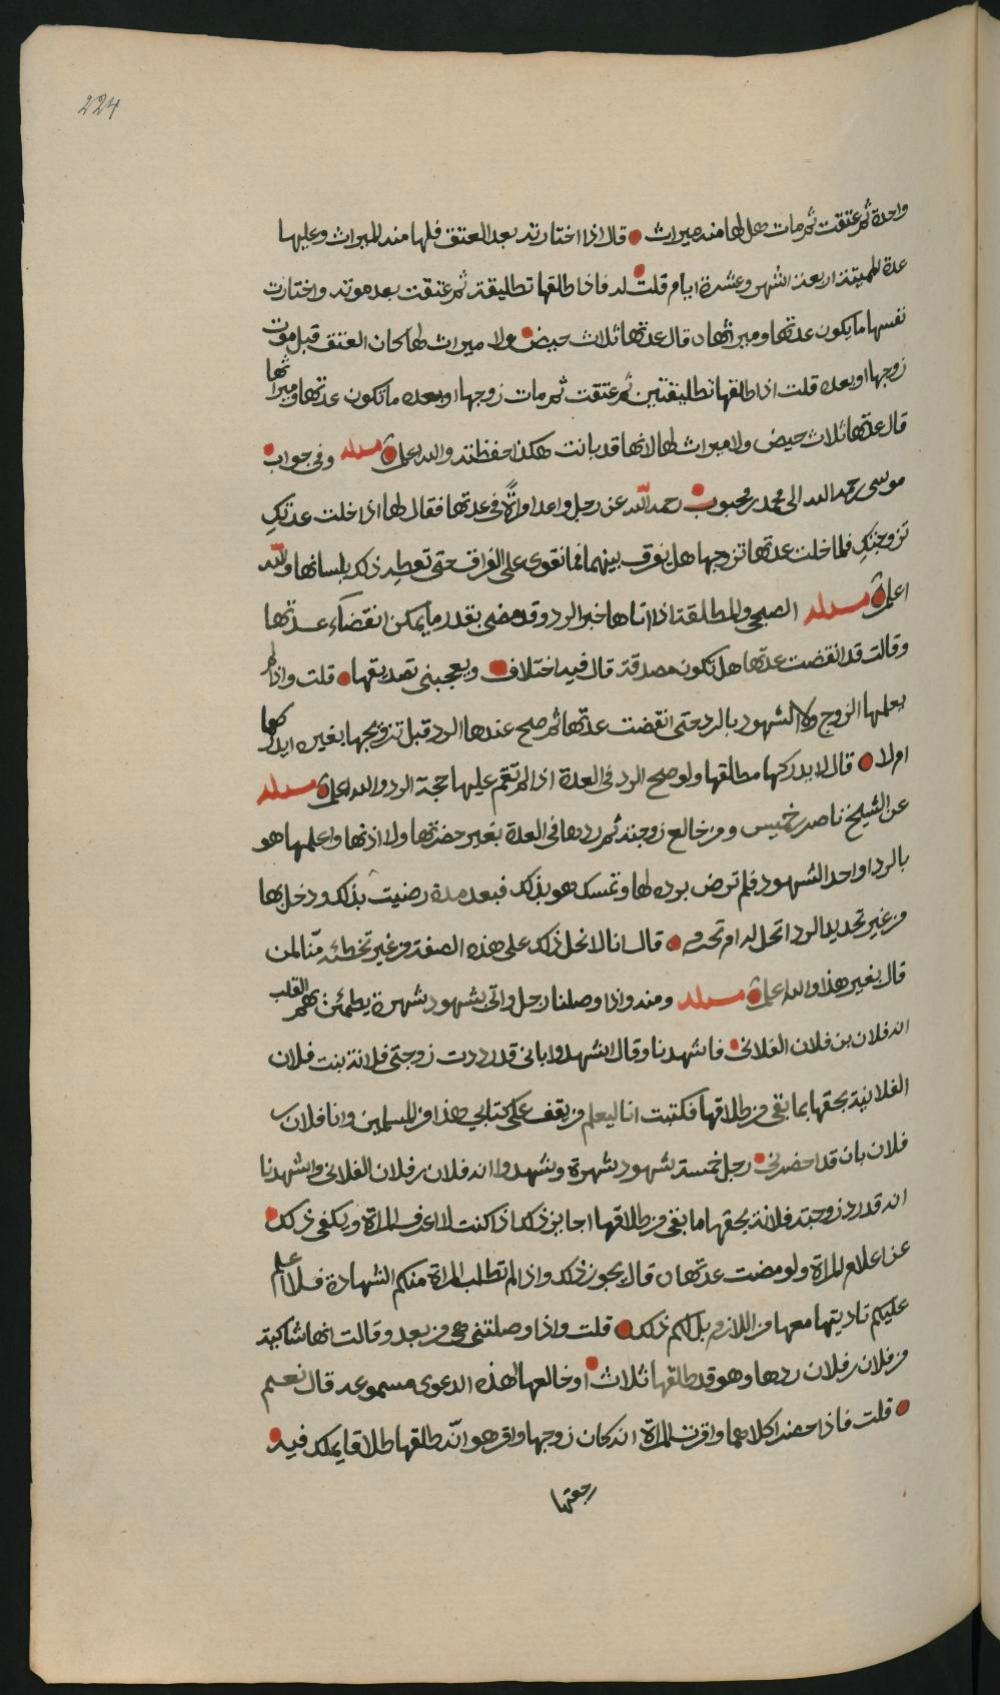 224
واحدة ثم عتقت ثم مات هل لها منه ميراث قال اذا اختارته بعد العتق فلها منه الميراث وعليها
عدة المميتة اربعة اشهر وعشرة ايام قلت له فاذا طلقها تطليقة ثم عتقت بعد موته واختارت
نفسها ما يكون عدتها وميراثها قال عدتها ثلاث حيض ولا ميراث لها كان العتق قبل موت
زوجها او بعده قلت اذا طلقها تطليقتين ثم عتقت ثم مات زوجها او بعده ما تكون عدتها وميراثها
قال عدتها ثلاث حيض ولا ميراث لها لانها قد بانت هكذا حفظته والله اعلم مسئلة وفي جواب
موسى رحمه الله الى محمد بن محبوب رحمه الله عن رجل واعد امراة في عدتها فقال لها اذا خلت عدتك
تزوجتك فلما خلت عدتها تزوجها هل يفرق بينهما فما نقوى على الفراق حتى تعطيه ذلك بلسانها والله
اعلم مسئلة الصبحي والمطلقة اذا اتاها خبر الرد وقد مضى بقدر ما يمكن انقضاء عدتها
وقالت قد انقضت عدتها هل تكون مصدقة قال فيه اختلاف ويعجبني تصديقها قلت واذا لم
يعلمها الزوج ولا الشهود بالرد حتى انقضت عدتها ثم صح عندها الرد قبل تزويجها بغيره ايدركها
ام لا قال لا يدركها مطلقها ولو صح الرد في العدة اذا لم تقم عليها حجة الرد والله اعلم مسئلة
عن الشيخ ناصر بن خميس ومن خالع زوجته ثم ردها في العدة بغير حضرتها ولا اذنها واعلمها هو
بالرد او احد الشهود فلم ترض برده لها وتمسك هو بذلك فبعد مدة رضيت بذلك ودخل بها
من غير تجديد الرد اتحل له ام تحرم قال انا لا نحل ذلك على هذه الصفة من غير تخطئة منا لمن
قال بغير هذا والله اعلم مسئلة ومنه واذا وصلنا رجل واتى بشهود شهرة يطمئن بهم القلب
انه فلان بن فلان الفلاني فاشهدنا وقال اشهدوا باني قد رددت زوجتي فلانة بنت فلان
الفلانية بحقها بما بقي من طلاقها فكتبت انا ليعلم من يقف على كتابي هذا من المسلمين وانا فلان بن
فلان بان قد احضرني رجل خمسة شهود شهرة وشهدوا انه فلان بن فلان الفلاني واشهدنا
انه قد رد زوجته فلانة بحقها ما بقي من طلاقها اجايز ذلك اذا كنت لا اعرف المراة ويكفي ذلك
عن اعلام المراة ولو مضت عدتها قال يجوز ذلك واذا لم تطلب المراة منكم الشهادة فلا اعلم
عليكم تاديتها معها من اللازم بل لكم ذلك قلت واذا وصلتني هي من بعد وقالت انها شاكية
من فلان بن فلان ردها وهو قد طلقها ثلاث او خالعها هذه الدعوى مسموعة قال نعم
قلت فاذا حضرا كلاهما واقرت المراة انه كان زوجها واقر هو انه طلقها طلاقا يملك فيه
رجعتها